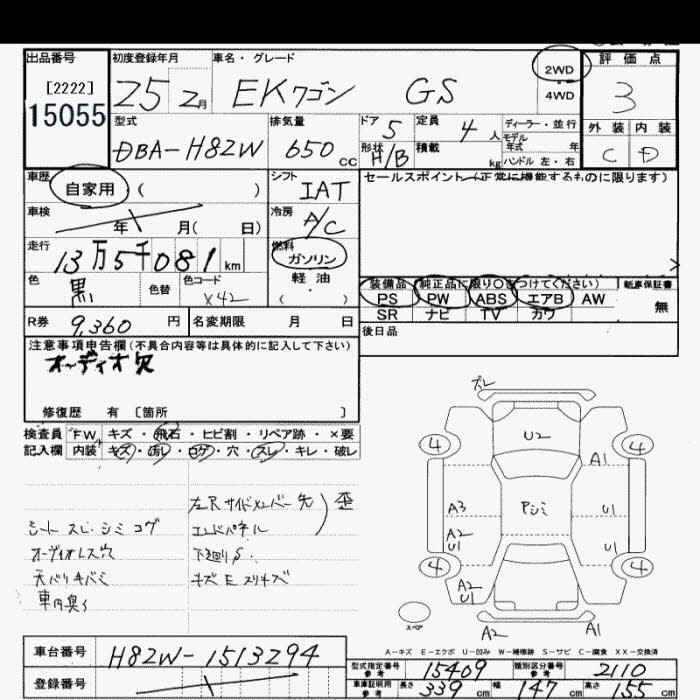 出品番号
[2222]
15055
初度登録年月
25 2月
車名・グレード
EKワゴン GS
2WD
4WD
評価点
3
外装 内装
C D
型式
DBA-H82W
排気量
650 CC
ドア 5
形状 H/B
定員 4 人
積載 kg
ディーラー・並行
モデル年式 年
ハンドル 左・右
車歴
自家用 ( )
車検
年 月( 日)
走行
13万5千081 km
色 黒
色替
色コード X42
シフト
IAT
冷房
A/C
燃料
ガソリン
軽油
( )
セールスポイント(正常に機能するものに限ります)
装備品 純正品に限り○をつけてください)
PS PW ABS エアB AW
SR ナビ TV カワ
新車保証書
無
後日品
R券 9,360 円
名変期限 月 日
注意事項申告欄(不具合内容等は具体的に記入して下さい)
オーディオ欠
修復歴 有 〔箇所 〕
検査員 FW キズ・飛石・ヒビ割・リペア跡・×要
記入欄 内装 キズ・汚レ・コゲ・穴・スレ・キレ・破レ
左Rサイドメンバー先
エンドパネル
歪
シート スレ・シミ コゲ
オーディオレス穴
下廻りS.
天バリキバミ
キズ E スリキズ
ズレ
4 U2 4
A1
A3 Pシミ U1
A2
U1 U1
4 4
A2
U1
スペア
A2 A1
A-キズ E-エクボ U-凹み W-補修跡 S-サビ C-腐食 XX-交換済
車台番号 H82W-1513294
登録番号
型式指定番号 参考 15409
類別区分番号 参考 2110
車庫証明用 参考 長さ 339 cm 幅 147 cm 高さ 155 cm